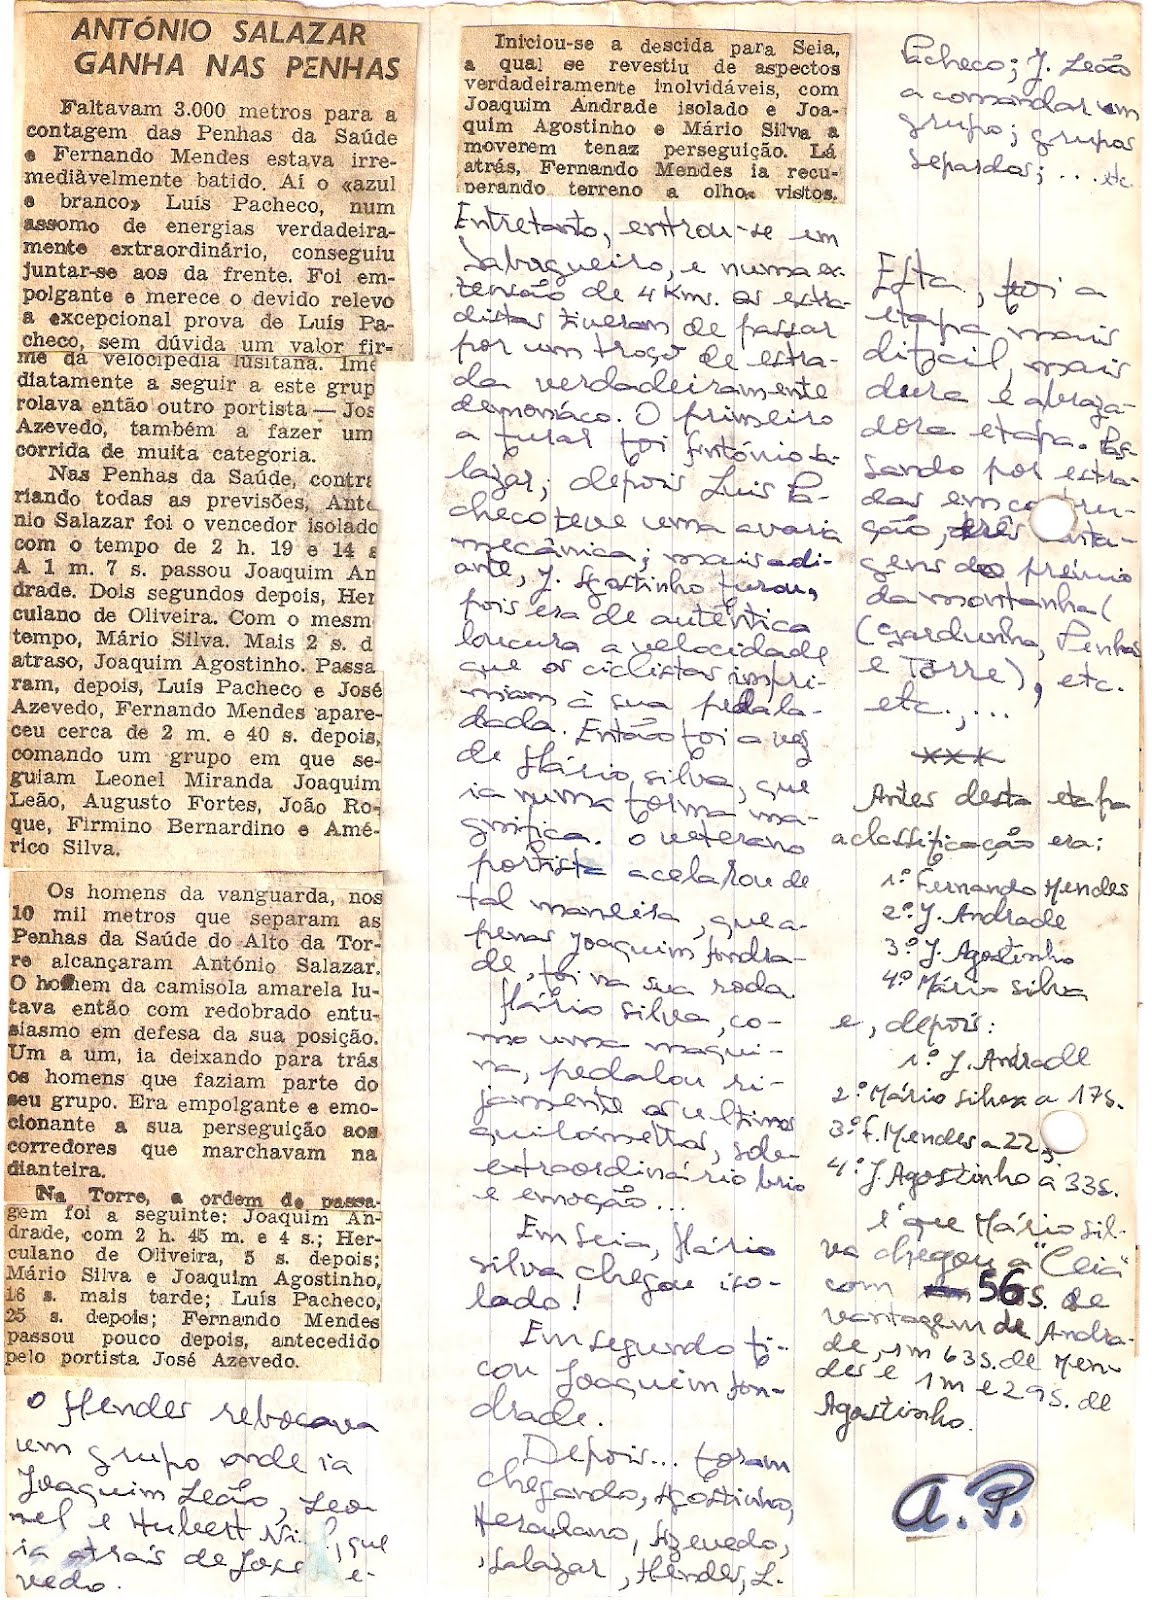 ANTÓNIO SALAZAR
GANHA NAS PENHAS
Faltavam 3.000 metros para a
contagem das Penhas da Saúde
e Fernando Mendes estava irre-
mediàvelmente batido. Aí o «azul
e branco» Luís Pacheco, num
assomo de energias verdadeira-
mente extraordinário, conseguiu
juntar-se aos da frente. Foi em-
polgante e merece o devido relevo
a excepcional prova de Luís Pa-
checo, sem dúvida um valor fir-
me da velocipedia lusitana. Ime
diatamente a seguir a este grup
rolava então outro portista — Jos
Azevedo, também a fazer um
corrida de muita categoria.
Nas Penhas da Saúde, contra
riando todas as previsões, Antó
nio Salazar foi o vencedor isolado
com o tempo de 2 h. 19 e 14 s
A 1 m. 7 s. passou Joaquim An
drade. Dois segundos depois, Her
culano de Oliveira. Com o mesm
tempo, Mário Silva. Mais 2 s. d
atraso, Joaquim Agostinho. Passa
ram, depois, Luís Pacheco e José
Azevedo, Fernando Mendes apare-
ceu cerca de 2 m. e 40 s. depois,
comando um grupo em que se-
guiam Leonel Miranda Joaquim
Leão, Augusto Fortes, João Ro-
que, Firmino Bernardino e Amé-
rico Silva.
Os homens da vanguarda, nos
10 mil metros que separam as
Penhas da Saúde do Alto da Tor-
re alcançaram António Salazar.
O homem da camisola amarela lu-
tava então com redobrado entu-
siasmo em defesa da sua posição.
Um a um, ia deixando para trás
os homens que faziam parte do
seu grupo. Era empolgante e emo-
cionante a sua perseguição aos
corredores que marchavam na
dianteira.
Na Torre, a ordem de passa-
gem foi a seguinte: Joaquim An-
drade, com 2 h. 45 m. e 4 s.; Her-
culano de Oliveira, 5 s. depois;
Mário Silva e Joaquim Agostinho,
16 s. mais tarde; Luís Pacheco,
25 s. depois; Fernando Mendes
passou pouco depois, antecedido
pelo portista José Azevedo.
O Mendes rebocava
um grupo onde ia
Joaquim Leão, Leo-
nel e Hubert Ni , que
ia atrás de José
vedo.
Iniciou-se a descida para Seia,
a qual se revestiu de aspectos
verdadeiramente inolvidáveis, com
Joaquim Andrade isolado e Joa-
quim Agostinho e Mário Silva a
moverem tenaz perseguição. Lá
atrás, Fernando Mendes ia recu-
perando terreno a olhos vistos.
Entretanto, entrou-se em
Sabugueiro, e numa ex-
tensão de 4 Kms. os estra-
distas tiveram de passar
por um troço de estra-
da verdadeiramente
demoníaco. O primeiro
a furar foi António Sa-
lazar; depois Luis Pa-
checo teve uma avaria
mecânica; mais adi-
ante, J. Agostinho furou,
pois era de autêntica
loucura a velocidade
que os ciclistas impri-
miam à sua pedala-
dada. Então foi a vez
de Mário Silva, que
ia numa forma ma-
gnífica. O veterano
portista acelarou de
tal maneira, que a-
penas Joaquim Andra-
de, foi na sua roda.
Mário Silva, co-
mo uma maqui-
na, pedalou ri-
jamente os ultimos
quilómetros, sob
extraordinário brio
e emoção...
Em Seia, Mário
Silva chegou iso-
lado!
Em segundo fi-
cou Joaquim An-
drade.
Depois... foram
chegando, Agostinho,
Herculano, Azevedo,
, Salazar, Mendes, L.
Pacheco; J. Leão
a comandar um
grupo; grupos
separados; ... etc.
Esta, foi a
etapa mais
difícil, mais
dura e abraza-
dora etapa. Pas-
sando por estra-
das em constru-
ção, três conta-
gens do prémio
da montanha (
(Gardunha, Penhas
e Torre), etc.
etc., ...
xxx
Antes desta etapa
a classificação era:
1º. Fernando Mendes
2º. J. Andrade
3º. J. Agostinho
4º. Mário Silva
e, depois:
1º. J. Andrade
2º. Mário Silva a 17s.
3º. F. Mendes a 22s.
4º. J. Agostinho a 33s.
É que Mário Sil-
va chegou a "Ceia"
com 56s. de
vantagem de Andra-
de, 1m 63s. de Men-
des e 1m e 29s. de
Agostinho.
A. P.